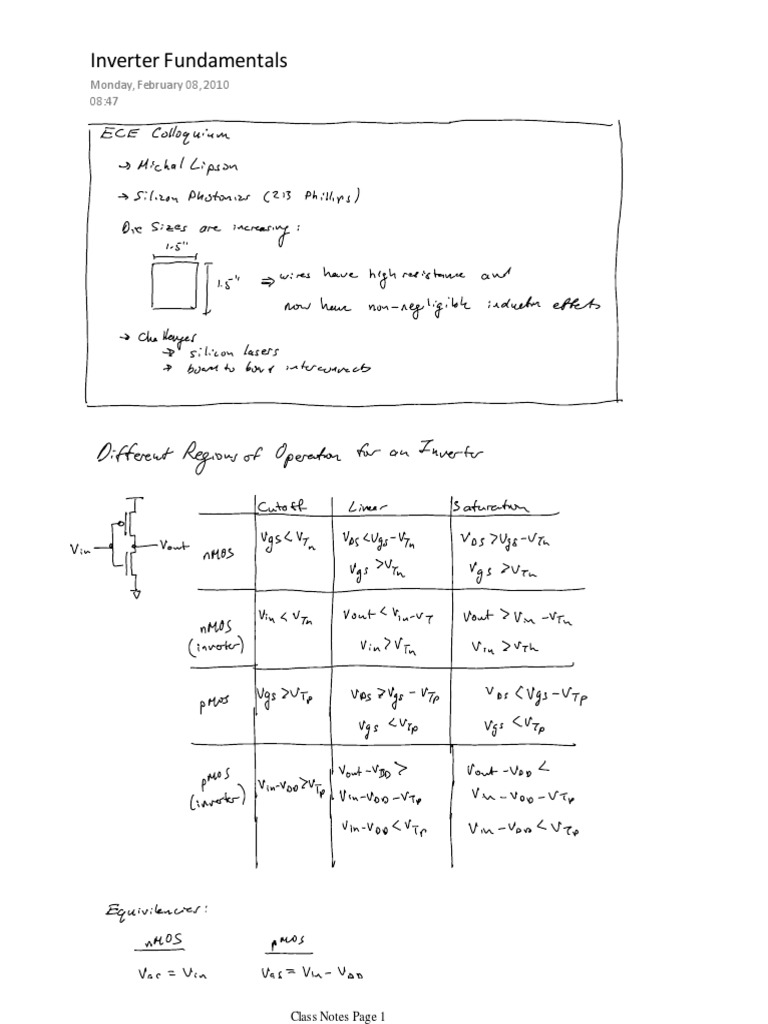 Inverter Fundamentals
Monday, February 08, 2010
08:47
ECE Colloquium
→ Michal Lipson
→ Silicon Photonics (213 Phillips)
Die Sizes are increasing:
1.5"
1.5" ⇒ wires have high resistance and
now have non-negligible inductor effects
→ Challenges
→ silicon lasers
→ board to board interconnects
Different Regions of Operation for an Inverter
Cutoff Linear Saturation
Vin Vout
nMOS Vgs < VTn VDS < Vgs - VTn VDS > Vgs - VTn
Vgs > VTn Vgs > VTn
nMOS (inverter) Vin < VTn Vout < Vin - VT Vout > Vin - VTn
Vin > VTn Vin > VTn
pMOS Vgs > VTp VDS > Vgs - VTp VDS < Vgs - VTp
Vgs < VTp Vgs < VTp
pMOS (inverter) Vin - VDD > VTp Vout - VDD > Vout - VDD <
Vin - VDD - VTp Vin - VDD - VTp
Vin - VDD < VTp Vin - VDD < VTp
Equivilencies:
nMOS pMOS
VGS = Vin VGS = Vin - VDD
Class Notes Page 1